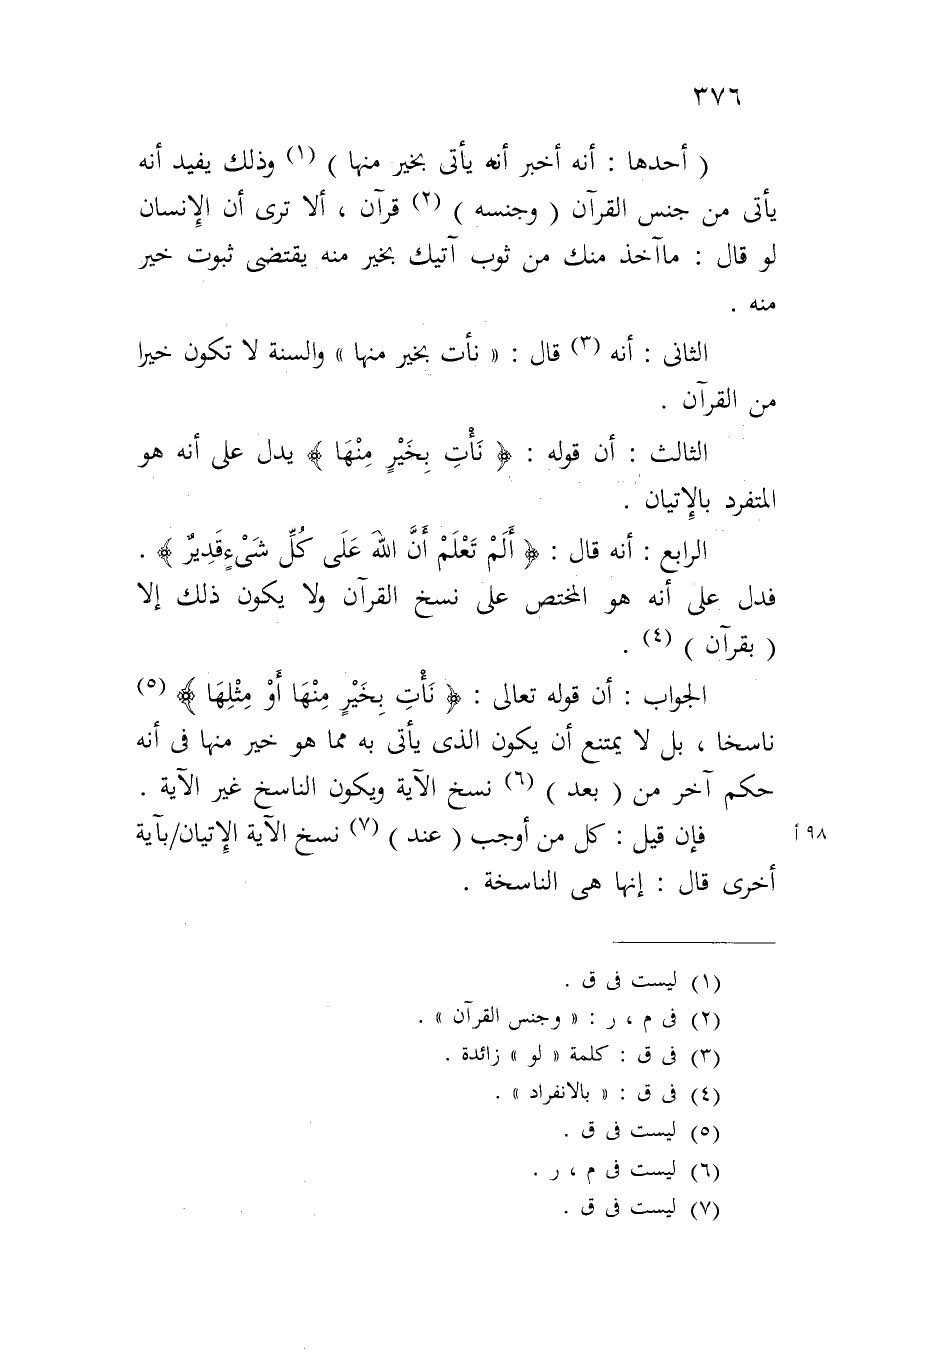 ٣٧٦
( أحدها : أنه أخبر أنه يأتى بخير منها ) (١) وذلك يفيد أنه
يأتى من جنس القرآن ( وجنسه ) (٢) قرآن ، ألا ترى أن الإنسان
لو قال : ماآخذ منك من ثوب آتيك بخير منه يقتضى ثبوت خير
منه .
الثانى : أنه (٣) قال : « نأت بخير منها » والسنة لا تكون خيرا
من القرآن .
الثالث : أن قوله : ﴿ نَأْتِ بِخَيْرٍ مِنْهَا ﴾ يدل على أنه هو
المتفرد بالإتيان .
الرابع : أنه قال : ﴿ أَلَمْ تَعْلَمْ أَنَّ اللهَ عَلَى كُلِّ شَىْءٍ قَدِيرٌ ﴾ .
فدل على أنه هو المختص على نسخ القرآن ولا يكون ذلك إلا
( بقرآن ) (٤) .
الجواب : أن قوله تعالى : ﴿ نَأْتِ بِخَيْرٍ مِنْهَا أَوْ مِثْلِهَا ﴾ (٥)
ناسخا ، بل لا يمتنع أن يكون الذى يأتى به مما هو خير منها فى أنه
حكم آخر من ( بعد ) (٦) نسخ الآية ويكون الناسخ غير الآية .
٩٨ أ فإن قيل : كل من أوجب ( عند ) (٧) نسخ الآية الإتيان/بآية
أخرى قال : إنها هى الناسخة .
(١) ليست فى ق .
(٢) فى م ، ر : « وجنس القرآن » .
(٣) فى ق : كلمة « لو » زائدة .
(٤) فى ق : « بالانفراد » .
(٥) ليست فى ق .
(٦) ليست فى م ، ر .
(٧) ليست فى ق .